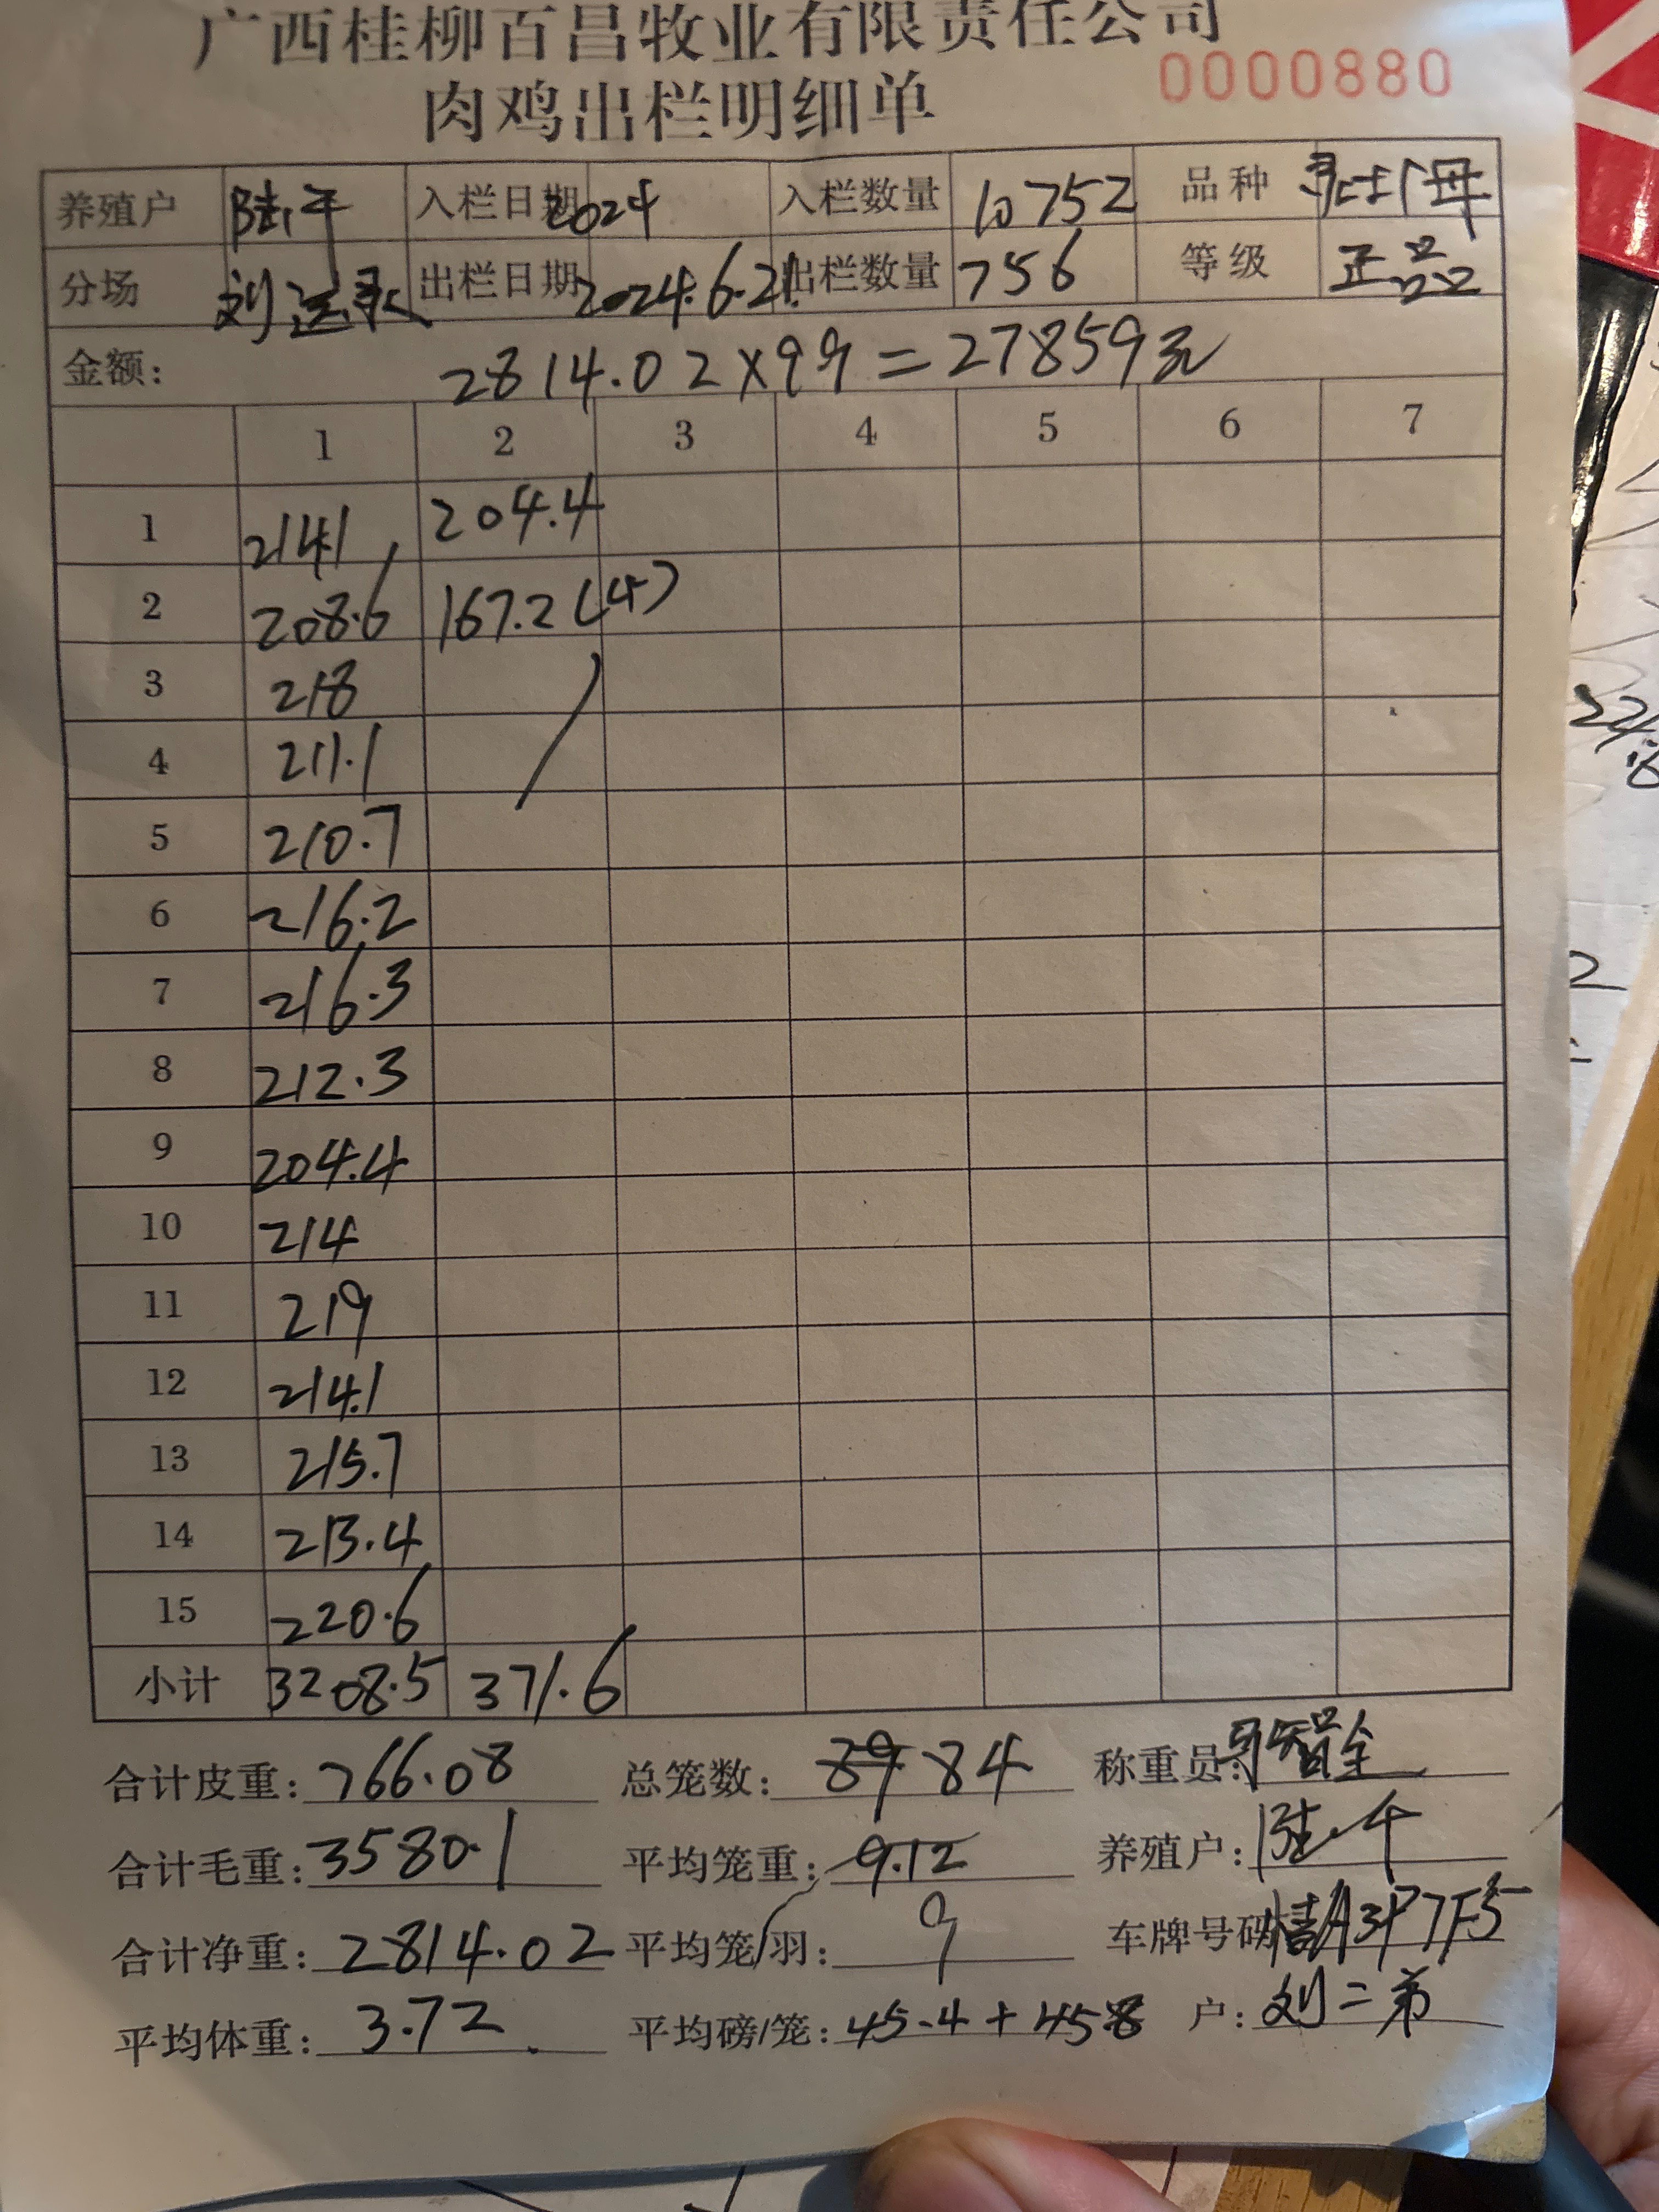 广西桂柳百昌牧业有限责任公司
肉鸡出栏明细单 0000880
养殖户 陆平 入栏日期 2024 入栏数量 10752 品种 母
分场 刘 出栏日期 2024.6.21 出栏数量 756 等级 正品
金额: 2814.02×99=27859元
1 2 3 4 5 6 7
1 214.1 204.4
2 208.6 167.2(4)
3 218
4 211.1
5 210.7
6 216.2
7 216.3
8 212.3
9 204.4
10 214
11 219
12 214.1
13 215.7
14 213.4
15 220.6
小计 3208.5 371.6
合计皮重: 766.08 总笼数: 89 84 称重员:
合计毛重: 3580.1 平均笼重: 9.12 养殖户: 陆平
合计净重: 2814.02 平均笼/羽: 9 车牌号码
平均体重: 3.72 平均磅/笼: 45.4+45.8 户: 刘二弟